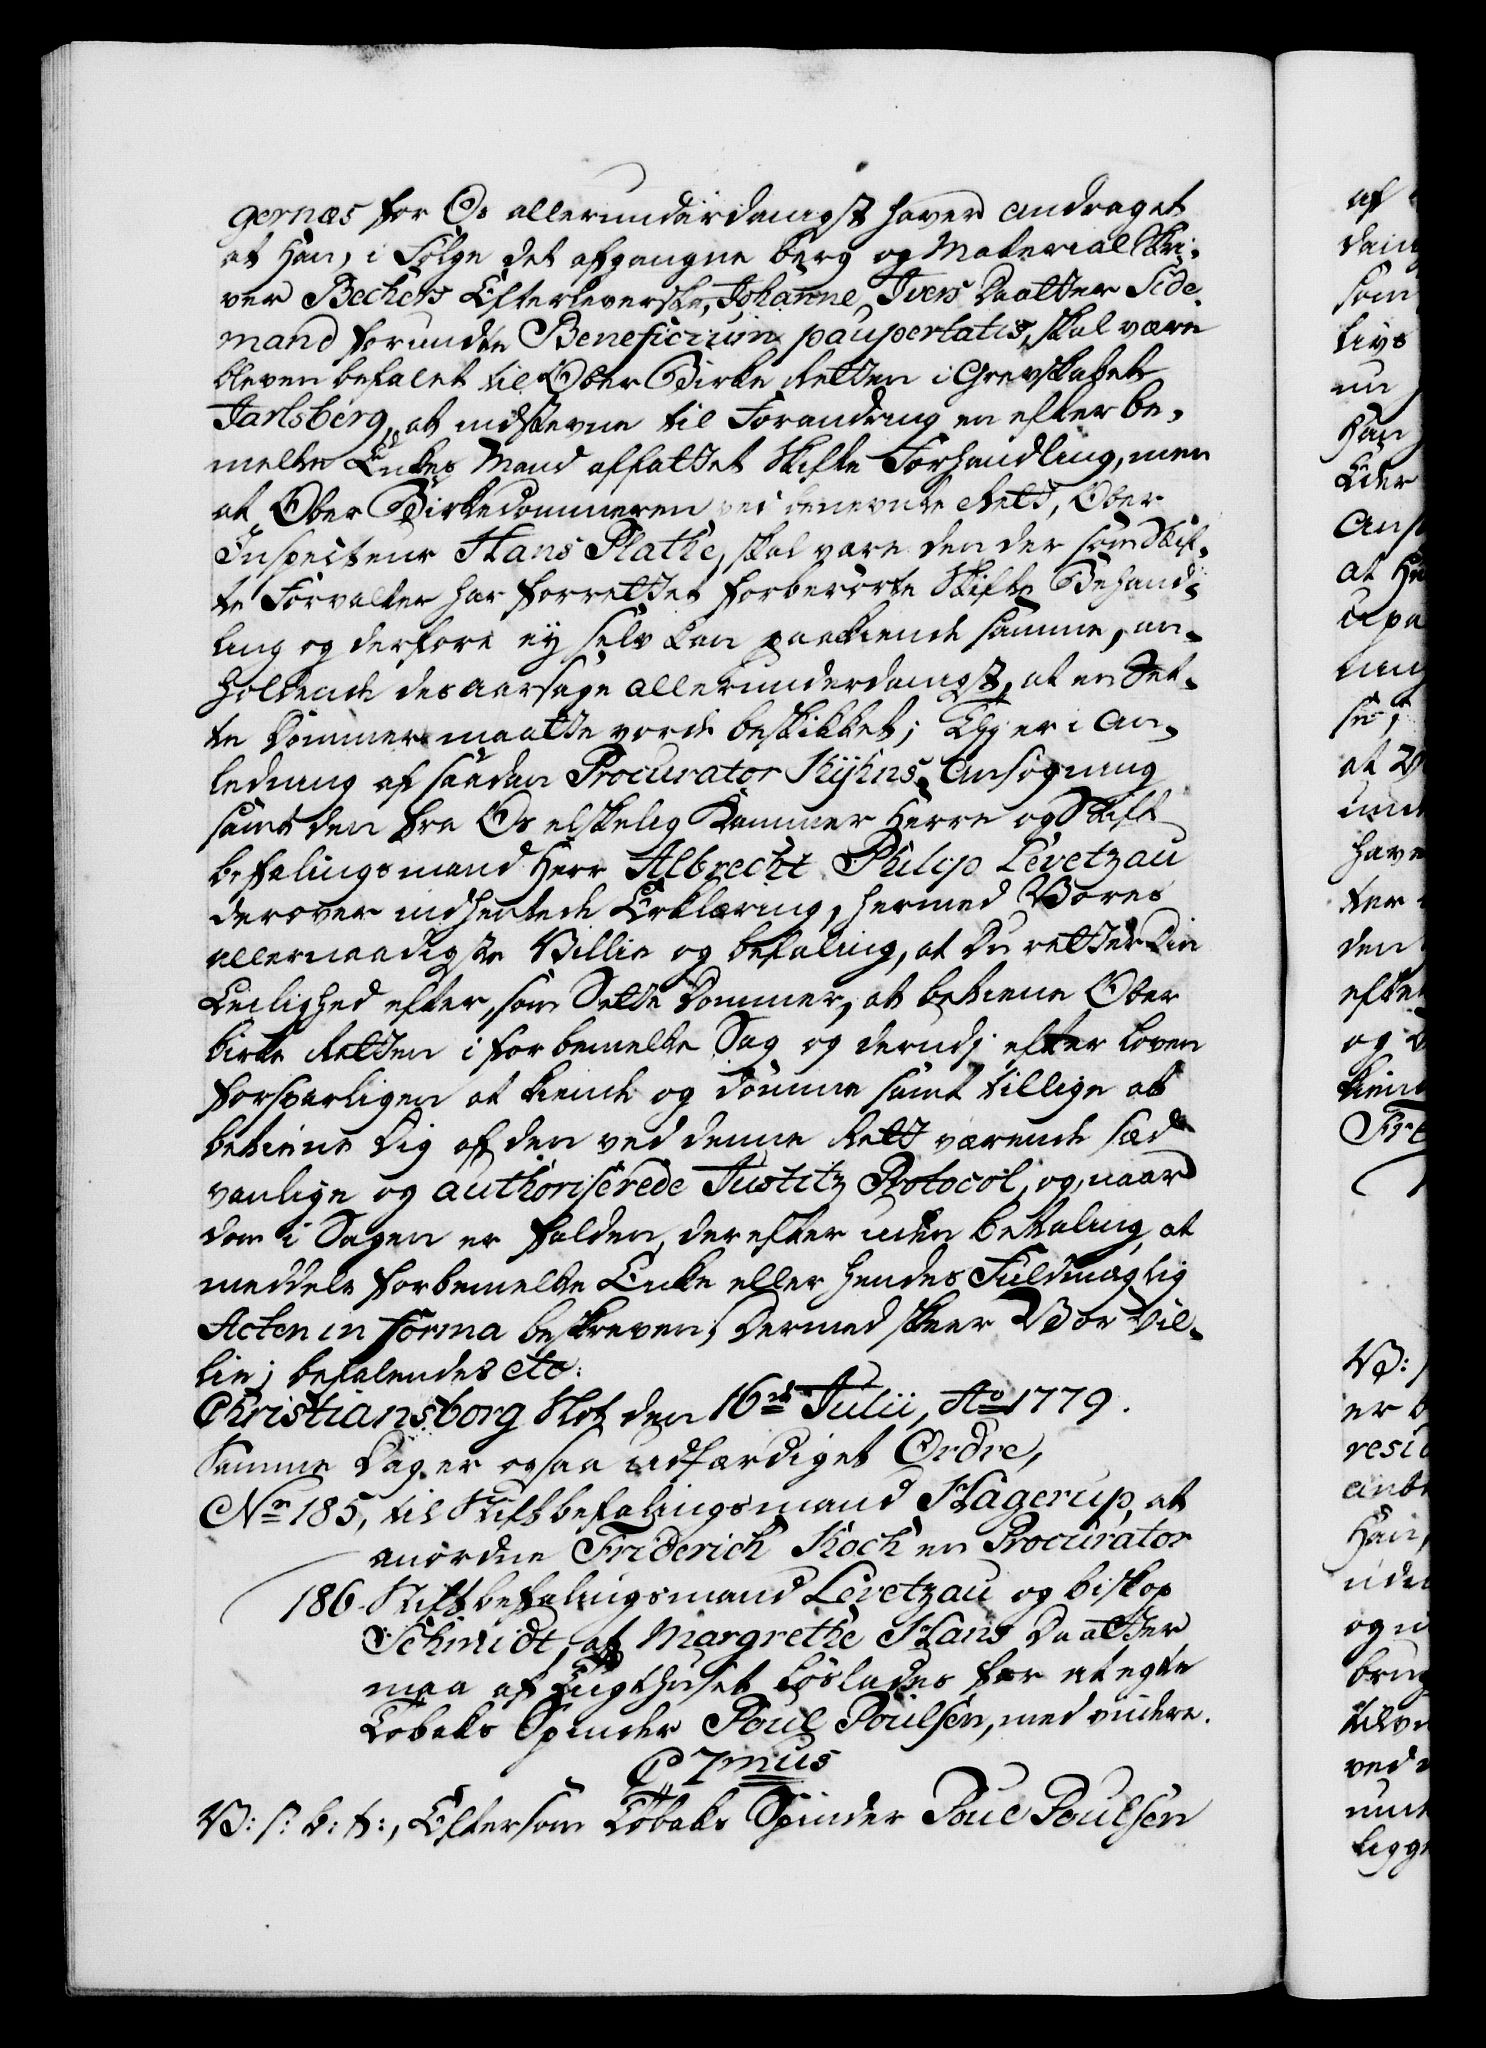 gernæs for Os allerunderdanigst haver andraget
at Han, i Følge det afgangne Berg og Material Skri-
ver Bechers Efterleverske, Johanne Ivers Daatter Side-
mand forundte Beneficium paupertatis, skal være
bleven befalet til Ober Birke Retten i Grevskabet
Jarlsberg, at indstevne til Forandring en efter be-
melte Enkes Mand affattet Skifte Forhandling, men
at Ober Birkedommeren ved benevnte Rett, Ober
Inspecteur Hans Plathe, skal være den der som Skif-
te Forvalter har forrettet forberørte Skifte Behand-
ling og derfore ey selv kan paakiende samme, an-
holdende desaarsage allerunderdanigst, at en Set-
te Dommer maatte vorde beskikket; Thj er i An-
ledning af saadan Procurator Kyhns Ansøgning
samt den fra Os elskelig Kammer Herre og Stift
befalingsmand Herr Albrecht Philip Levetzau
derover indhentede Erklæring, hermed Vores
allernaadigste Villie og befaling, at Du retter Din
Leilighed efter, som Sette Dommer, at betiene Ober
birke Retten i forbemelte Sag og derudj efter Loven
forsvarligen at kiende og dømme samt tillige at
betiene Dig af den ved denne Rett værende sæd
vanlige og authoriserede Justitz Protocol, og naar
dom i Sagen er falden, derefter uden betaling, at
meddele forbemelte Enke eller hendes Fuldmægtig
Acten in forma beskreven; Dermed skeer Vor Vil-
lie; befalendes etc:
Christiansborg Slot den 16de Julii, Ao 1779.
Samme Dag er ogsaa udfærdiget Ordre,
No 185, til Stiftbefalingsmand Hagerup, at
anordne Friderich Koch en Procurator
186 Stiftbefalingsmand Levetzau og biskop
Schmidt, at Margrethe Hans Daatter
maa af Tugthuset løslades for at egte
Tobaks Spinder Poul Poulsen, med videre.
C 7mus
V: s: b: t:, Eftersom Tobaks Spinder Poul Poulsen